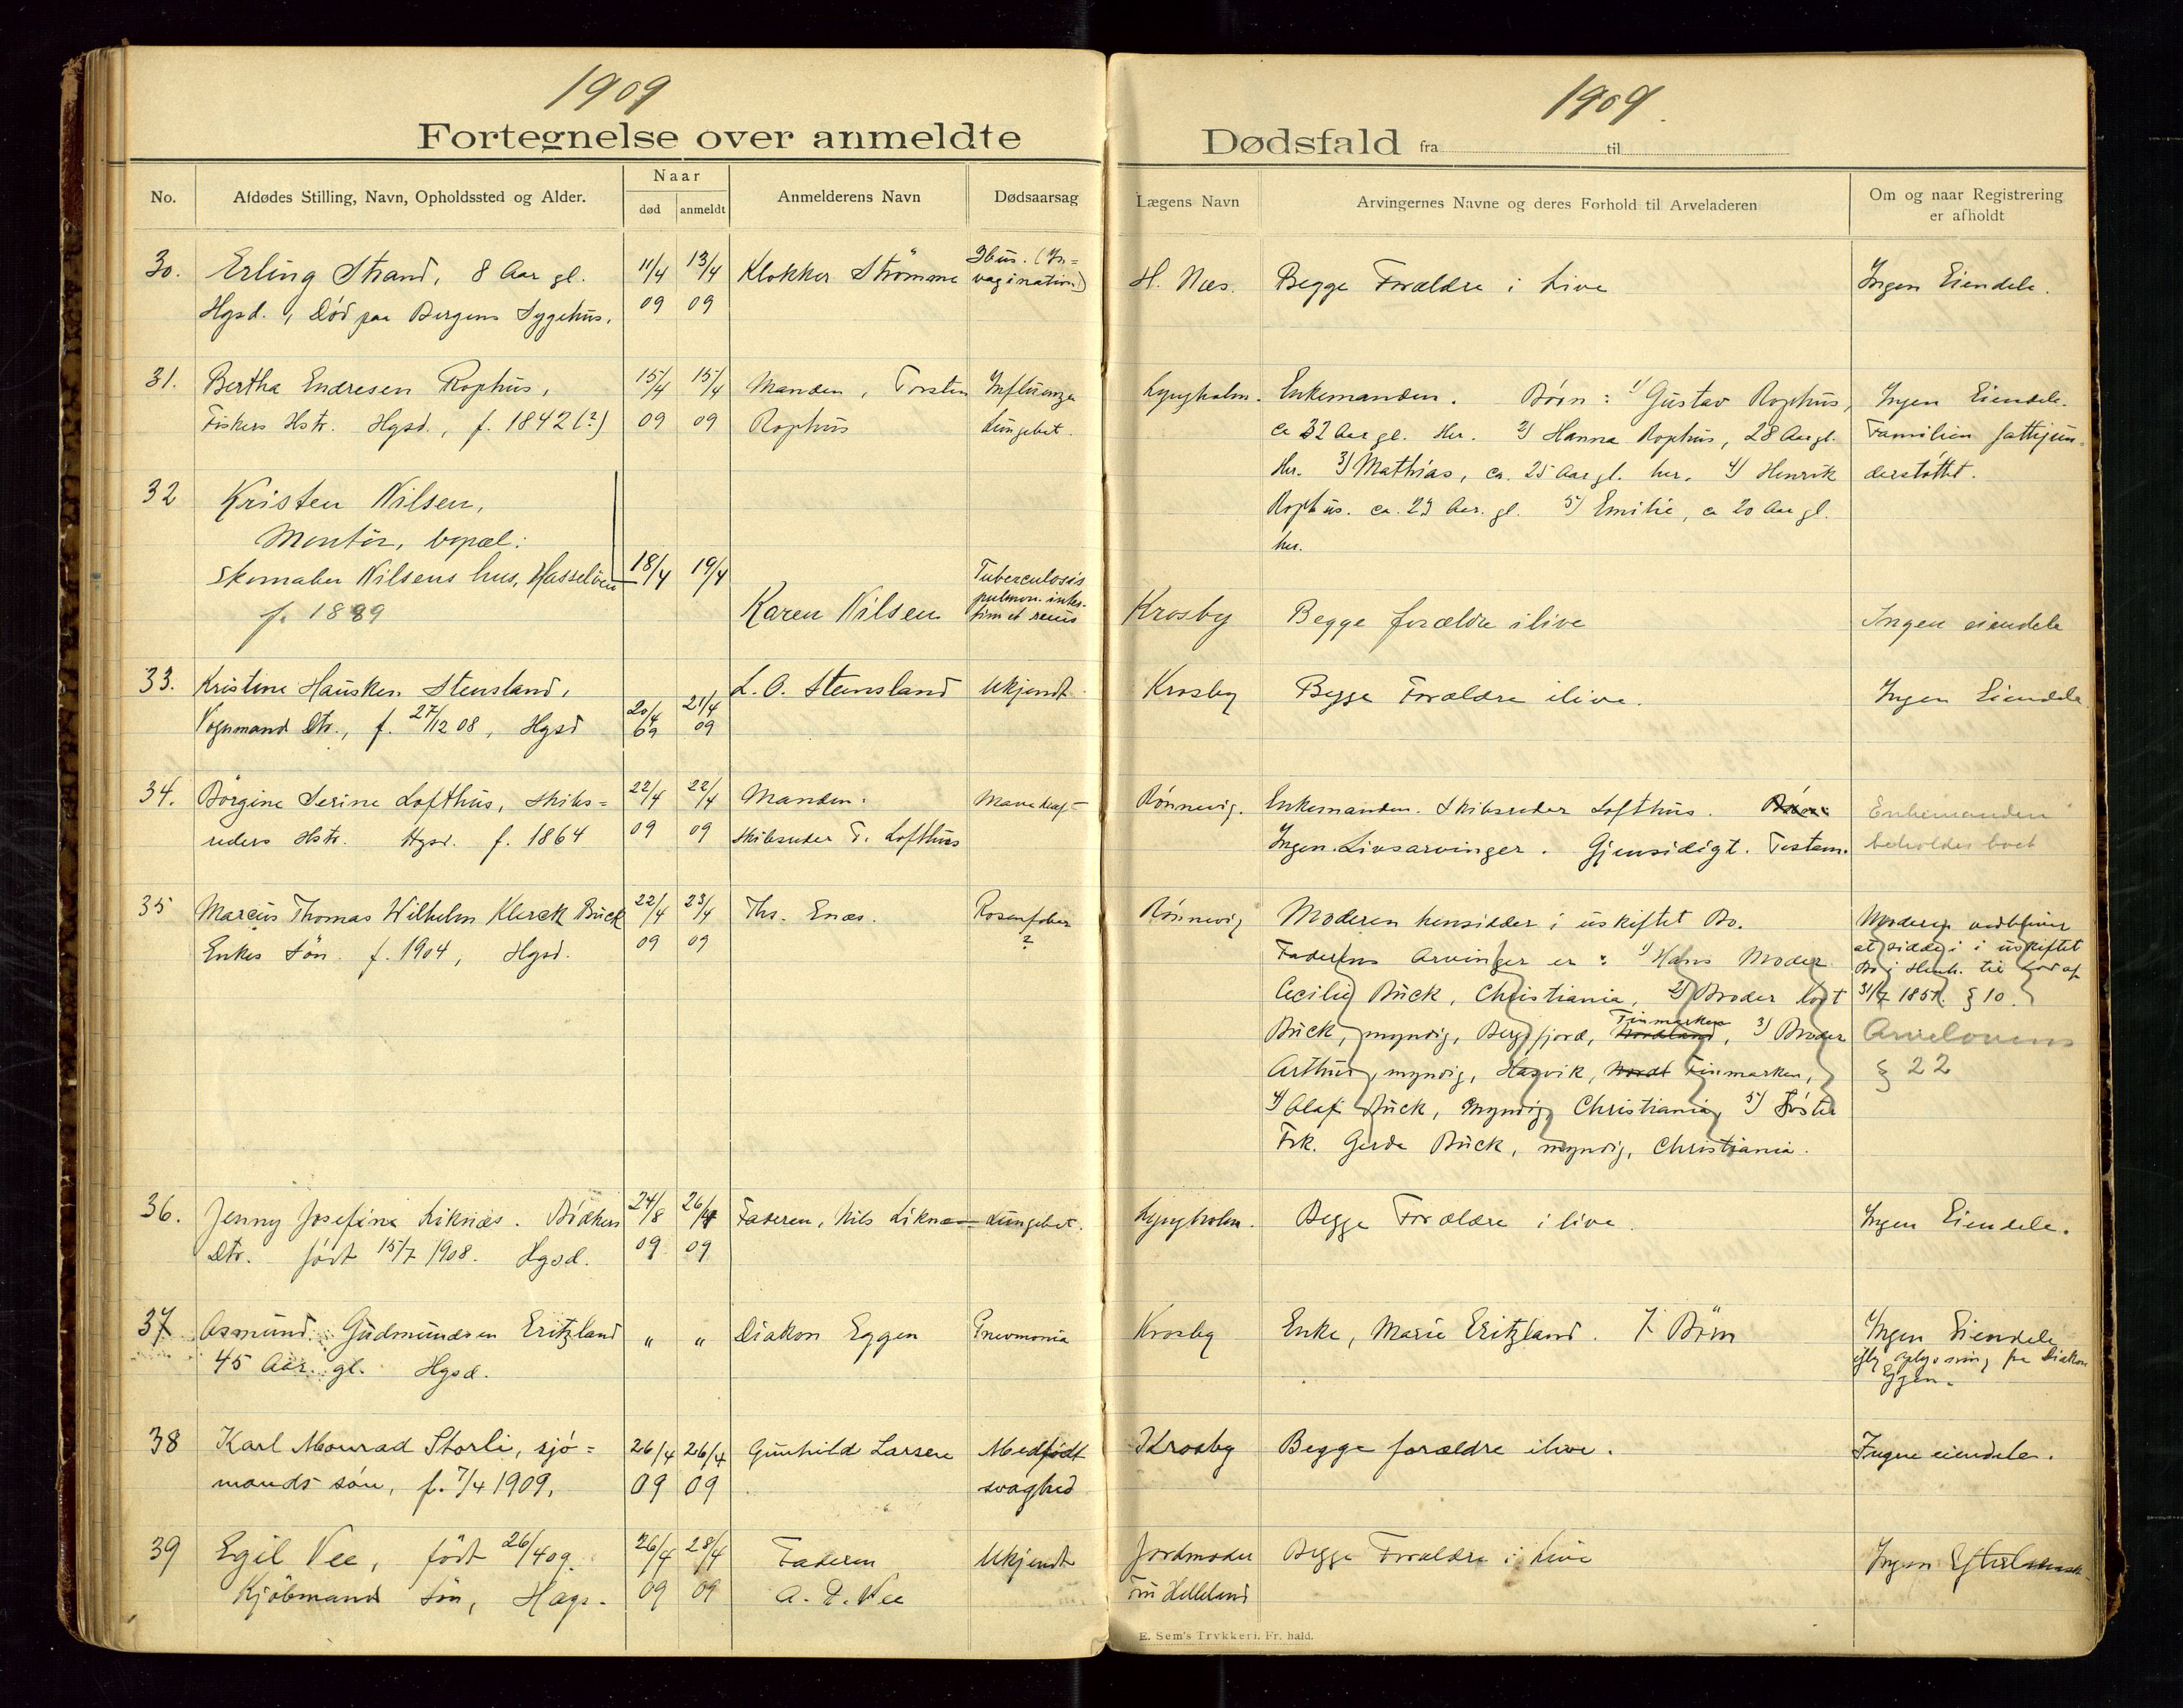 1909
1909.
Fortegnelse over anmeldte
Dødsfald fra til
No.
Afdødes Stilling, Navn, Opholdssted og Alder.
Naar
død
anmeldt
Anmelderens Navn
Dødsaarsag
Lægens Navn
Arvingernes Navne og deres Forhold til Arveladeren
Om og naar Registrering
er afholdt
30.
Erling Strand, 8 Aar gl.
Hgsd., Död paa Bergens Sygehus.
11/4
09
13/4
09
Klokker Strömme
Ilius. (In=
vagination)
H. Næs.
Begge Forældre i Live
Ingen Eiendele.
31.
Bertha Endresen Rophus,
Fiskers Hstr. Hgsd., f. 1842(?)
15/4
09
15/4
09
Manden, Torsten
Rophus
Influenza
Lungebet.
Lyngholm.
Enkemanden. Börn: 1/ Gustav Rophus,
ca 32 Aar gl. Her. 2/ Hanna Rophus, 28 Aar gl.
Her. 3/ Mathias, ca. 25 Aar gl. her. 4/ Henrik
Rophus. ca. 23 Aar. gl. 5/ Emilie, ca 20 Aar gl.
her.
Ingen Eiendele.
Familien fattigun=
derstöttet.
32
Kristen Nilsen,
Montör, bopæl:
Skomaker Nilsens hus, Hasselveien
f. 1889
18/4
19/4
Karen Nilsen
Tuberculosis
pulmon. intes-
tim et renis
Krosby
Begge forældre ilive
Ingen eiendele
33.
Kristine Hausken Stensland,
Vognmand Dtr., f. 27/12 08, Hgsd
20/4
09
21/4
09
L. O. Stensland
Ukjendt
Krosby
Begge Forældre ilive.
Ingen Eiendele
34.
Börgine Serine Lofthus, Skibs=
reders Hstr. Hgsd. f. 1864
22/4
09
22/4
09
Manden:
Skibsreder T. Lofthus
Mavekræft
Rönnevig.
Enkemanden. Skibsreder Lofthus. Börn:
Ingen Livsarvinger. Gjensidigt. Testam.
Enkemanden
beholder boet
35
Marcus Thomas Wilhelm Klerck Buck
Enkes Sön. f. 1904, Hgsd.
22/4
09
23/4
09
Ths. Enæs.
Rosenfeber
?
Rönnevig
Moderen hensidder i uskiftet Bo.
Faderens Arvinger er: 1/ Hans Moder
Cecilie Buck, Christiania, 2/ Broder
Buck, myndig, Bergsfjord, Nordland, Finmarken 3/ Broder
Arthur, myndig, Hasvik, Nordl Finmarken,
4/ Olaf Buck, myndig Christiania, 5/ Söster
Frk. Gerda Buck, myndig, Christiania.
Moderen vedbliver
at sidde i uskiftet
Bo i Henh. til Lov af
31/7 1851. § 10.
Arvelovens
§ 22
36.
Jenny Josefine Liknæs. Bödkers
Dtr. födt 15/7 1908. Hgsd.
24/8
09
26/4
09
Faderen, Nils Liknæs
Lungebet.
Lyngholm.
Begge Forældre i live.
Ingen Eiendele.
37
Asmund Gudmundsen Eritzland
45 Aar. gl. Hgsd.
"
"
Diakon Eggen
Pneumonia
Krosby
Enke, Marie Eritzland. 7 Börn
Ingen Eiendele
iflg oplysning fra Diakon
Eggen.
38
Karl Monrad Storli, sjö=
mands sön, f. 7/4 1909.
26/4
09
26/4
09
Gunhild Larsen
Medfödt
svaghed
Krosby
Begge forældre ilive.
Ingen eiendeler.
39
Egil Vee, födt 26/4 09.
Kjöbmand Sön, Hags.
26/4
09
28/4
09
Faderen
A. T. Vee
Ukjendt
Jordmoder
Fru Helleland
Begge Forældre i Live
Ingen
E. Sem's Trykkeri. Fr. hald.